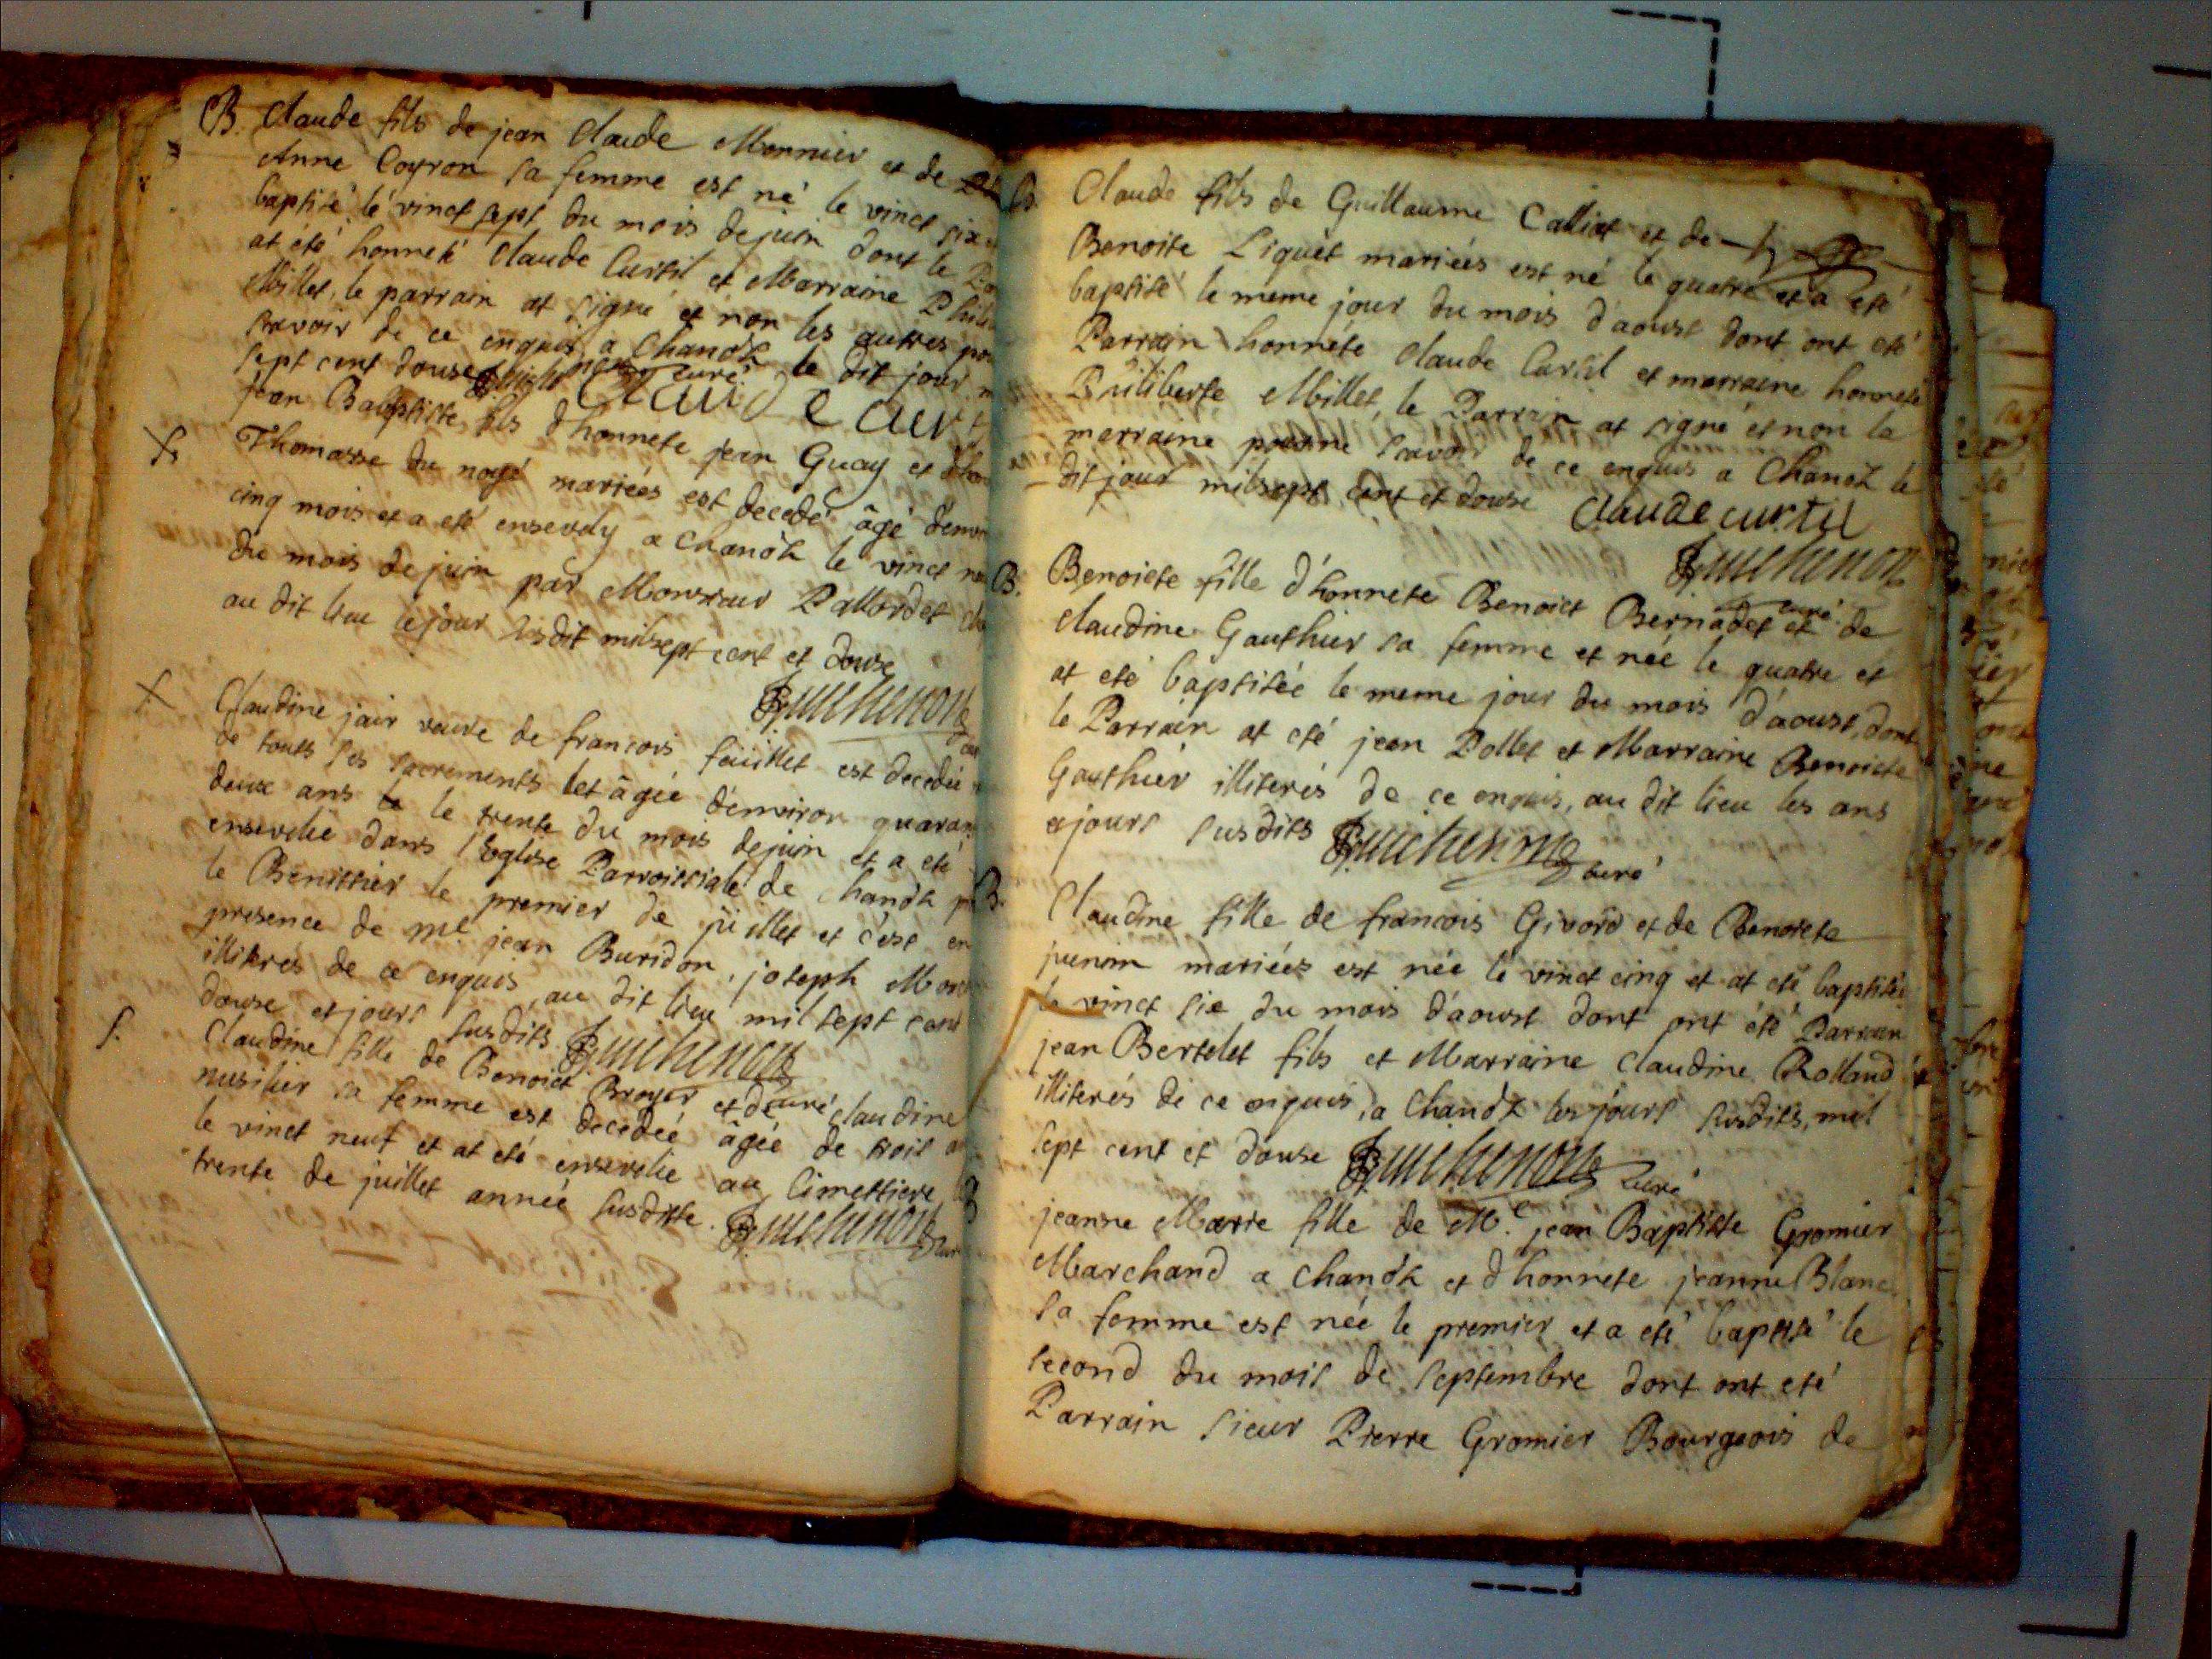 B. Claude fils de jean Claude Monnier et de
Anne Coyron sa femme est né le vinct six
baptisé le vinct sept du mois de juin dont le
at été honneté Claude Curtil et Marraine
Millet, le parrain at signé et non les autres
scavoir de ce enquis a Chanoz le dit jour
sept cent douse curé Claude Curt
jean Baptiste fils d'honnete jean Guay et
Thomasse du noyé mariées est decedé âgé
cinq mois et a eté ensevely a Chanoz le vinct
du mois de juin par Monsieur Pallordet
au dit lieu le jour susdit mil sept cent et douse
Claudine jair veuve de francois feüillet est decedée
de touts ses sacrements et âgée d'environ
deux ans le trente du mois de juin et a eté
ensevelie dans l'Eglise Parroissiale de Chanoz
le Benittier le premier de juillet et c'est en
presence de me jean Buridon, joseph
illiterés de ce enquis, au dit lieu mil sept cent
douse et jours susdits.
f. Claudine fille de Benoict Broyer et de Claudine
sa femme est decedeé âgée de trois
le vinct neuf et at eté ensevelie au Cimettiere
trente de juillet année susditte.
Claude fils de Guillaume Calliat et de
Benoite Liquet mariées est né le quatre et a eté
baptisé le meme jour du mois d'aoust dont ont eté
Parrain honnéte Claude Curtil et marraine honneté
Philiberte Millet, le Parrain at signé et non la
marraine pour ne scavoir de ce enquis a Chanoz le
dit jour mil sept cent et douse Claude curtil
curé
B. Benoicte fille d'honnete Benoict Bernadet et de
Claudine Gauthier sa femme et née le quatre et
at eté baptisée le meme jour du mois d'aoust, dont
le Parrain at eté jean Pollet et Marraine Benoicte
Gauthier illiterés de ce enquis, au dit lieu les ans
et jours susdits curé
B. Claudine fille de francois Givord et de Benoicte
mariées est née le vinct cinq et at eté baptisée
le vinct six du mois d'aoust dont ont été Parrain
jean Bertelet fils et Marraine Claudine Rolland
illiterés de ce enquis, a Chanoz les jours susdits, mil
sept cent et douse curé
B jeanne Marie fille de Me. jean Baptiste Gromier
Marchand a Chanoz et d'honnete jeanne Blanc
sa femme est née le premier et a eté baptisé le
second du mois de septembre dont ont eté
Parrain sieur Pierre Gromier Bourgeois de